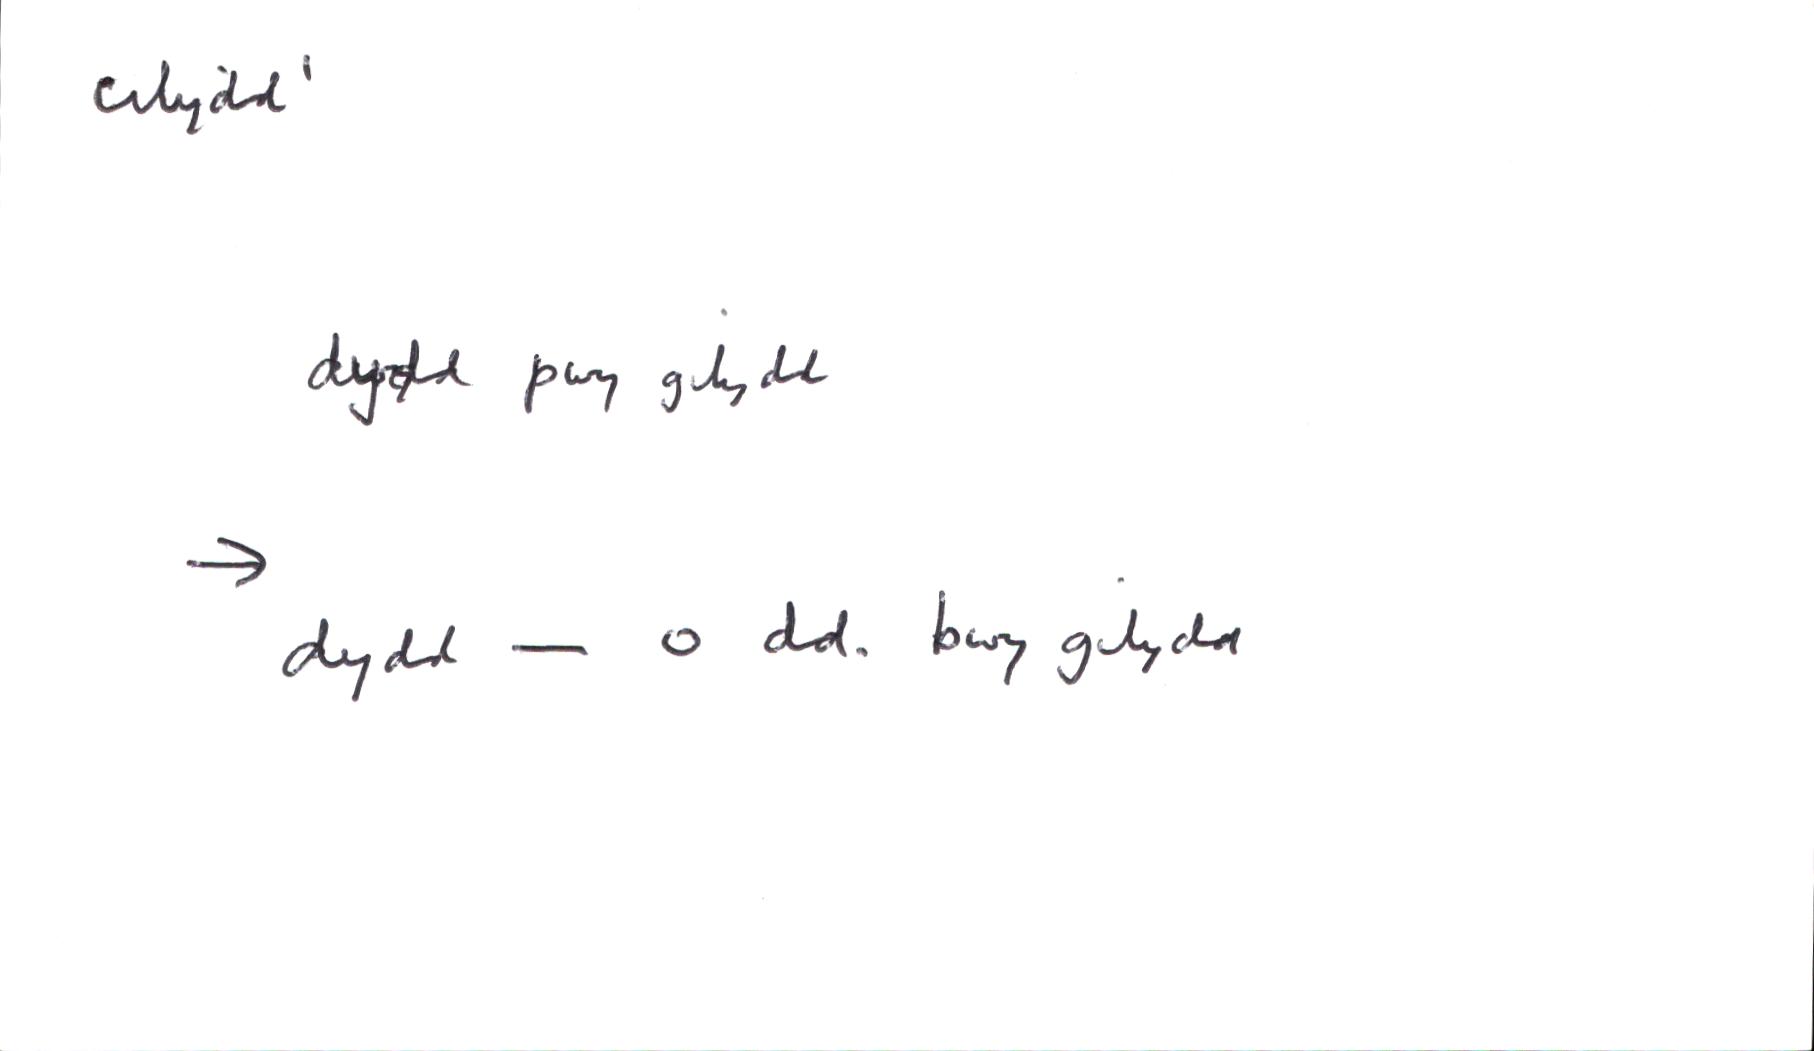 cilydd¹
dydd pwy gilydd
→
dydd — o dd. bwy gilydd